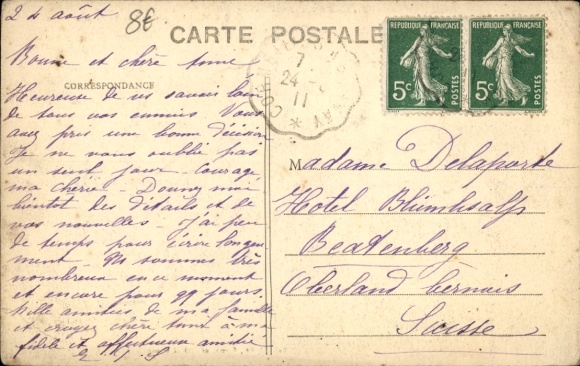 24 août
8€
CARTE POSTALE
Bonne et chère
CORRESPONDANCE
Heureuse de vs savoir loin
de tous vos ennuis. Vous
avez pris une bonne décision
Je ne vous oublie pas
un seul jour. Courage,
ma chérie. Donnez moi
bientôt des détails et de
vos nouvelles. J'ai peu
de temps pour écrire longue
ment. Ns sommes très
nombreux en ce moment
et encore pour 99 jours.
Mille amitiés de ma famille
et croyez chère à ma
fidèle et affectueuse amitié
7
24 -
11
RÉPUBLIQUE FRANÇAISE
5c POSTES
RÉPUBLIQUE FRANÇAISE
5c POSTES
Madame Delaporte
Hotel Blümlisalp
Beatenberg
Oberland bernois
Suisse